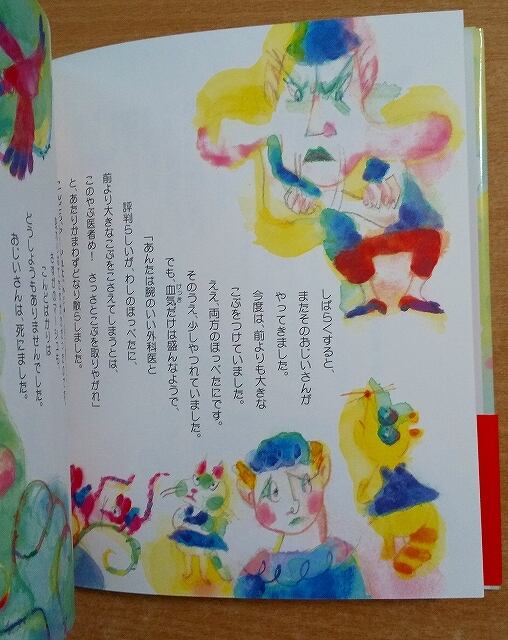 しばらくすると、
またそのおじいさんが
やってきました。
今度は、前よりも大きな
こぶをつけていました。
ええ、両方のほっぺたにです。
そのうえ、少しやつれていました。
でも血気だけは盛んなようで、
けっき
「あんたは腕のいい外科医と
評判らしいが、わしのほっぺたに、
前より大きなこぶをこさえてしまうとは、
このやぶ医者め! さっさとこぶを取りやがれ」
と、あたりかまわずどなり散らしました。
こんどばかりは
どうしようもありませんでした。
おじいさんは、死にました。